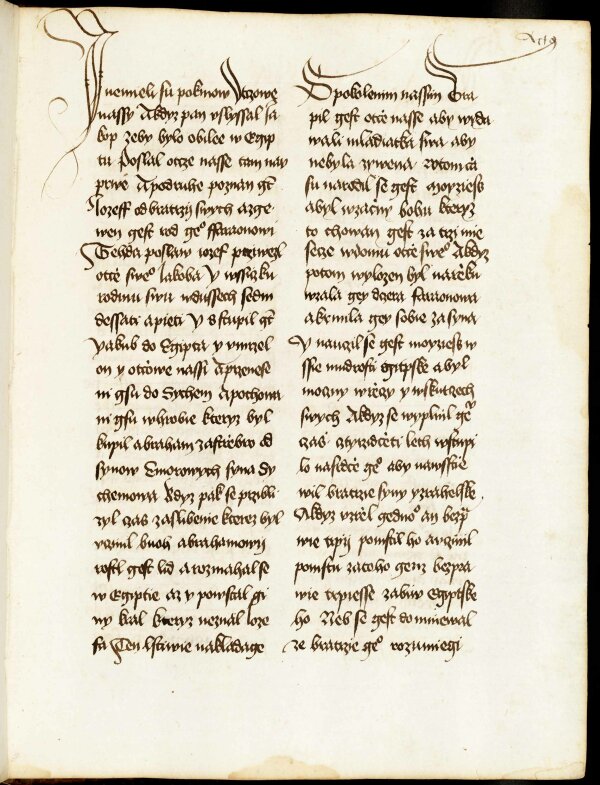 Act9
Nenmeli su pokmow Otczowe
nassy A kdyz pan vslyssal Ja
kop zeby bylo obilee w Egip
tu Poslal otcze nasse tam nay
prwe A podruhe poznan gt̄
Jozeff od bratrzij swych a zge
wen gest rod ge° ffaraonowi
Tehda poslaw iozef przizwezl
otcē swe° Jakoba y wssiczku
rodinu swu w dussech sedm
dessati a pieti y vstupil gt̄
yakub do Egipta y vmrzel
on y otczowe nassi A przenese
ni gsu do Sychem A pochowa
ni gsu w hrobie kteryz byl
kupil abraham za strzebro od
synow Emorowych syna Sy
chemowa Kdyz pak se przibli
zyl czas zaslibenie kterez byl
vczinil buoh abrahamowij
rostl gest lid a rozmahal se
w Egiptie az y powstal gi
ny kral kteryz neznal Joze
fa Ten lstiwie nakladage
S pokolenim nassim Tra
pil gest otcē nasse aby wyda
wali mladiatka swa aby
nebyla zywena W tom czā
su narodil se gest moyziess
a byl wzacny bohu kteryz
to chowan gest za trzi mie
secze w domu otcē swe° A kdyz
potom wylozen byl na rzeku
wzala gey dcera faraonowa
a krmila gey sobie za syna
y nauczil se gest moyziess w
ssie mudrosti egiptske a byl
mocny w rzeczy y w skutczech
swych A kdyz se wyplnil ge°
czas cztyrzdceti leth wstupi
lo na srdce ge° aby nawsstie
wil bratrzie syny yzrahelske
A kdyz vzrzel gedno° an bezpr̄
wie trpij pomstil ho a vczinil
pomstu za toho genz bezpra
wie trpiesse zabiw Egyptske
ho Neb se gest domniewal
ze bratrzie ge° rozumiegi